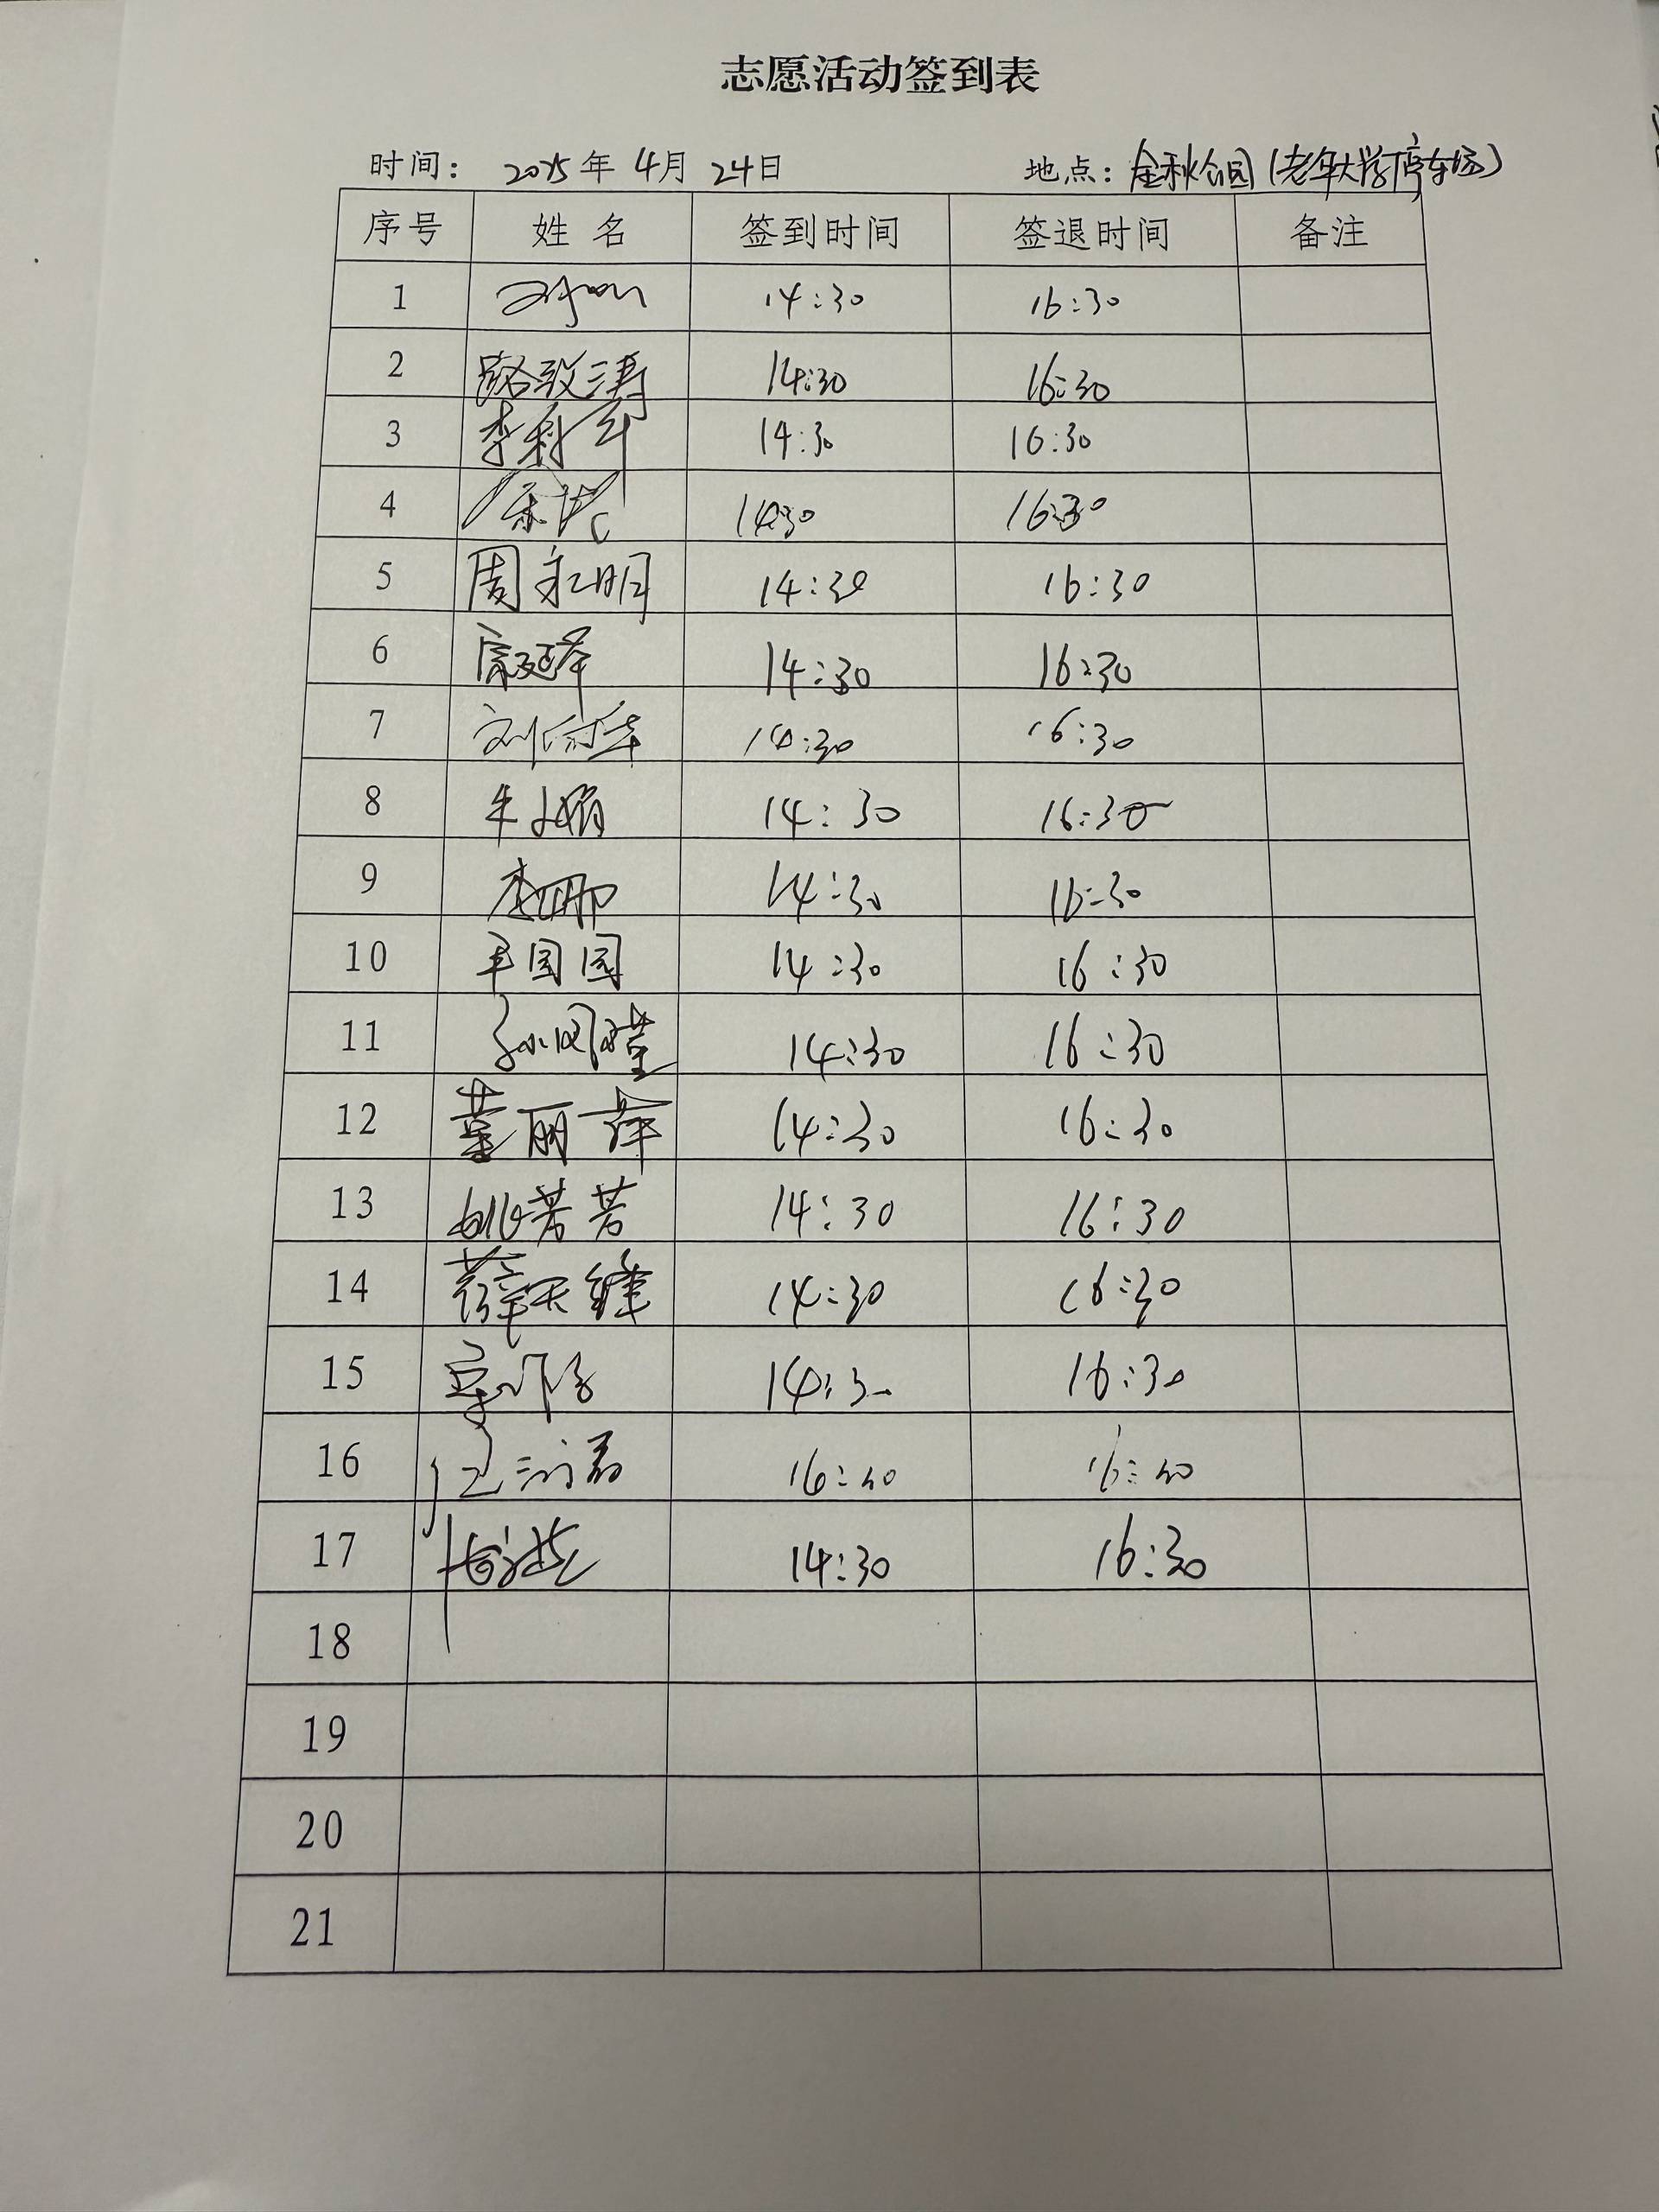 志愿活动签到表
时间: 2025年 4月 24日 地点: 金秋公园(老年大学停车场)
序号 姓名 签到时间 签退时间 备注
1 14:30 16:30
2 路致涛 14:30 16:30
3 李利军 14:30 16:30
4 14:30 16:30
5 周永明 14:30 16:30
6 14:30 16:30
7 14:30 16:30
8 朱娟 14:30 16:30
9 李娜 14:30 16:30
10 国园 14:30 16:30
11 孙凤莹 14:30 16:30
12 董丽萍 14:30 16:30
13 姚芳芳 14:30 16:30
14 薛天锋 14:30 16:30
15 14:30 16:30
16
17 14:30 16:30
18
19
20
21